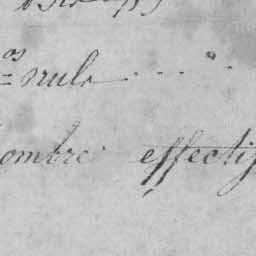 os nuls .... "
ombre effectif